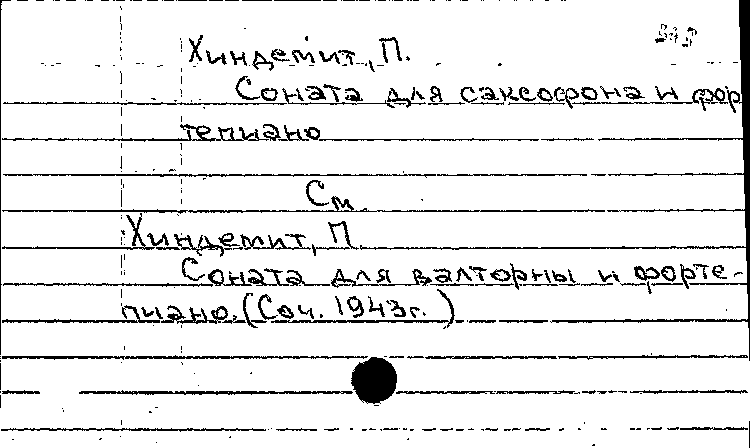 Хиндемит, П.
Соната для саксофона и фор
тепиано
См.
Хиндемит, П.
Соната для валторны и форте-
пиано. (Соч. 1943г. )